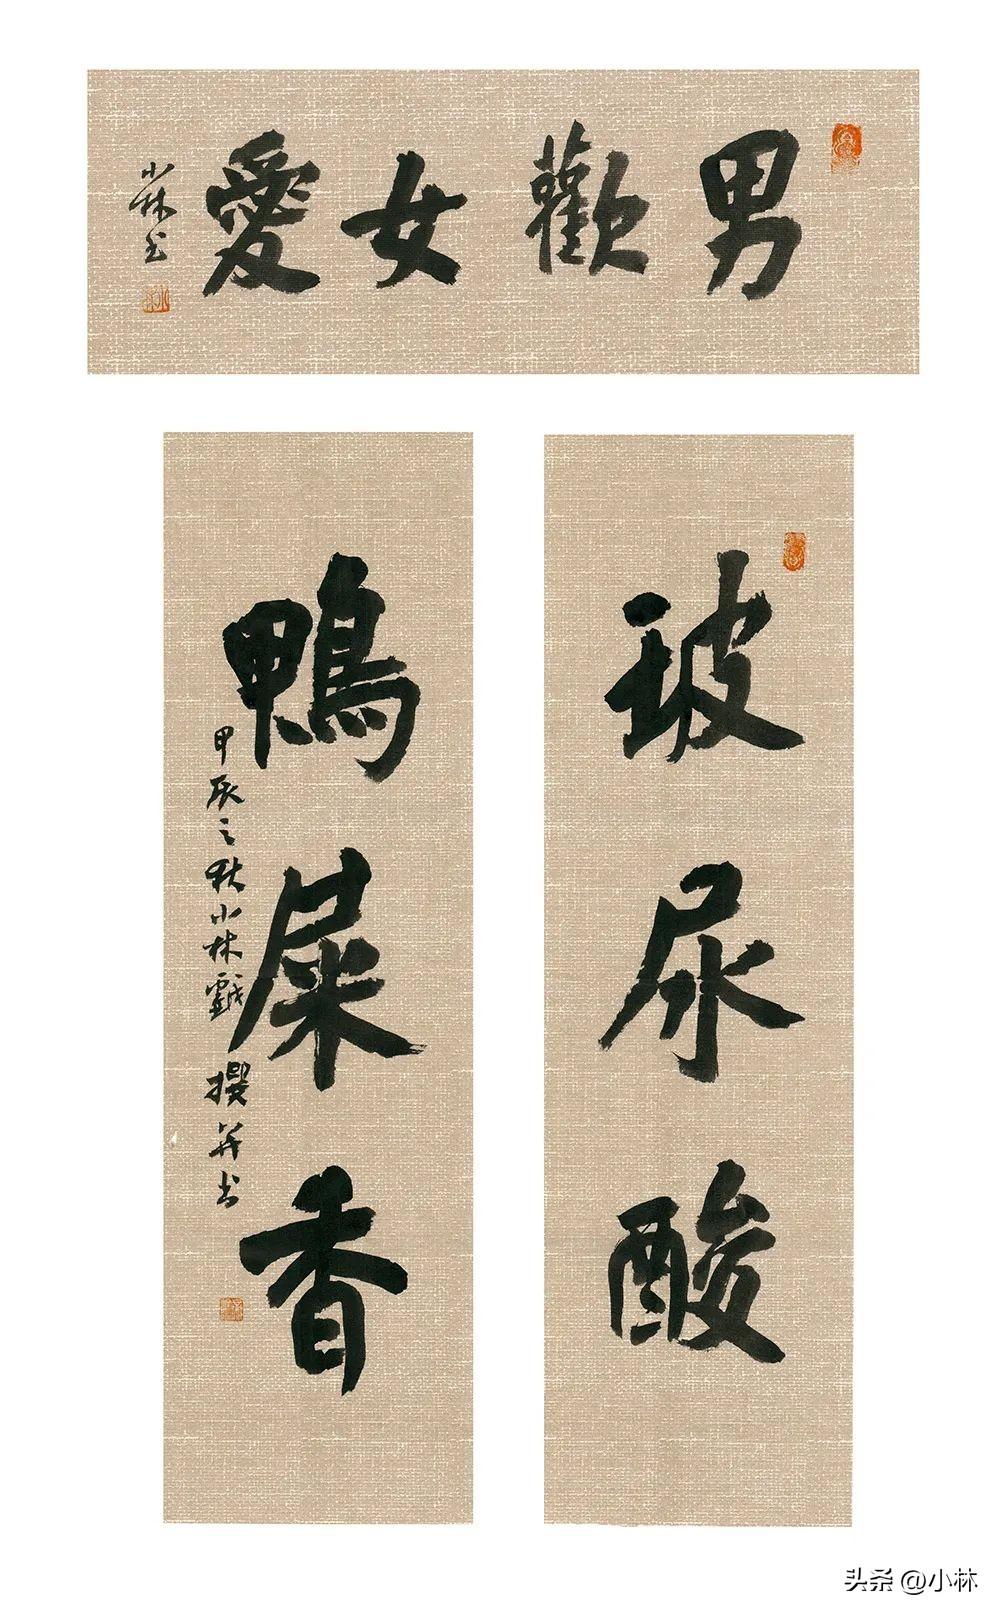 男歡女愛
小林书
玻尿酸
鴨屎香
甲辰之秋小林戲撰并书
头条 @小林